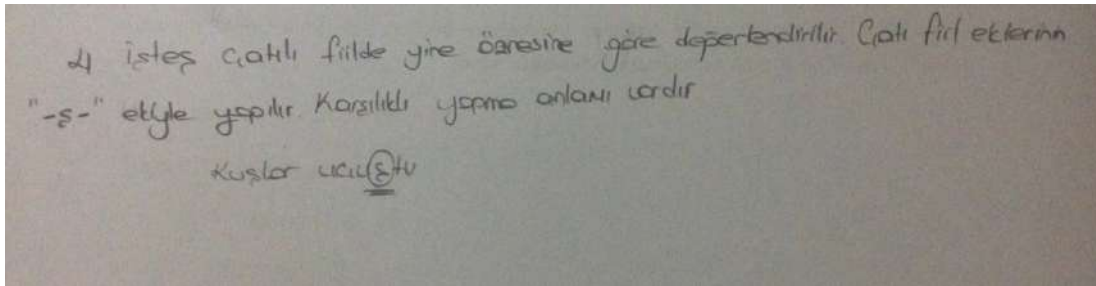 4 işteş çatılı fiilde yine öznesine göre değerlendirilir. Çatı fiil eklerinin
"-ş-" ekiyle yapılır. Karşılıklı yapma anlamı vardır
Kuşlar uçuştu